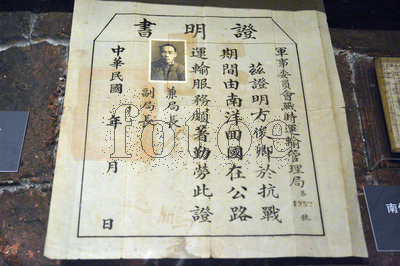 證明書
軍事委員會戰時運輸管理局
號
茲證明方俊卿於抗戰
期間由南洋回國在公路
運輸服務頗著勤勞此證
兼局長
副局長
中華民國 年 月 日
fotoe
南